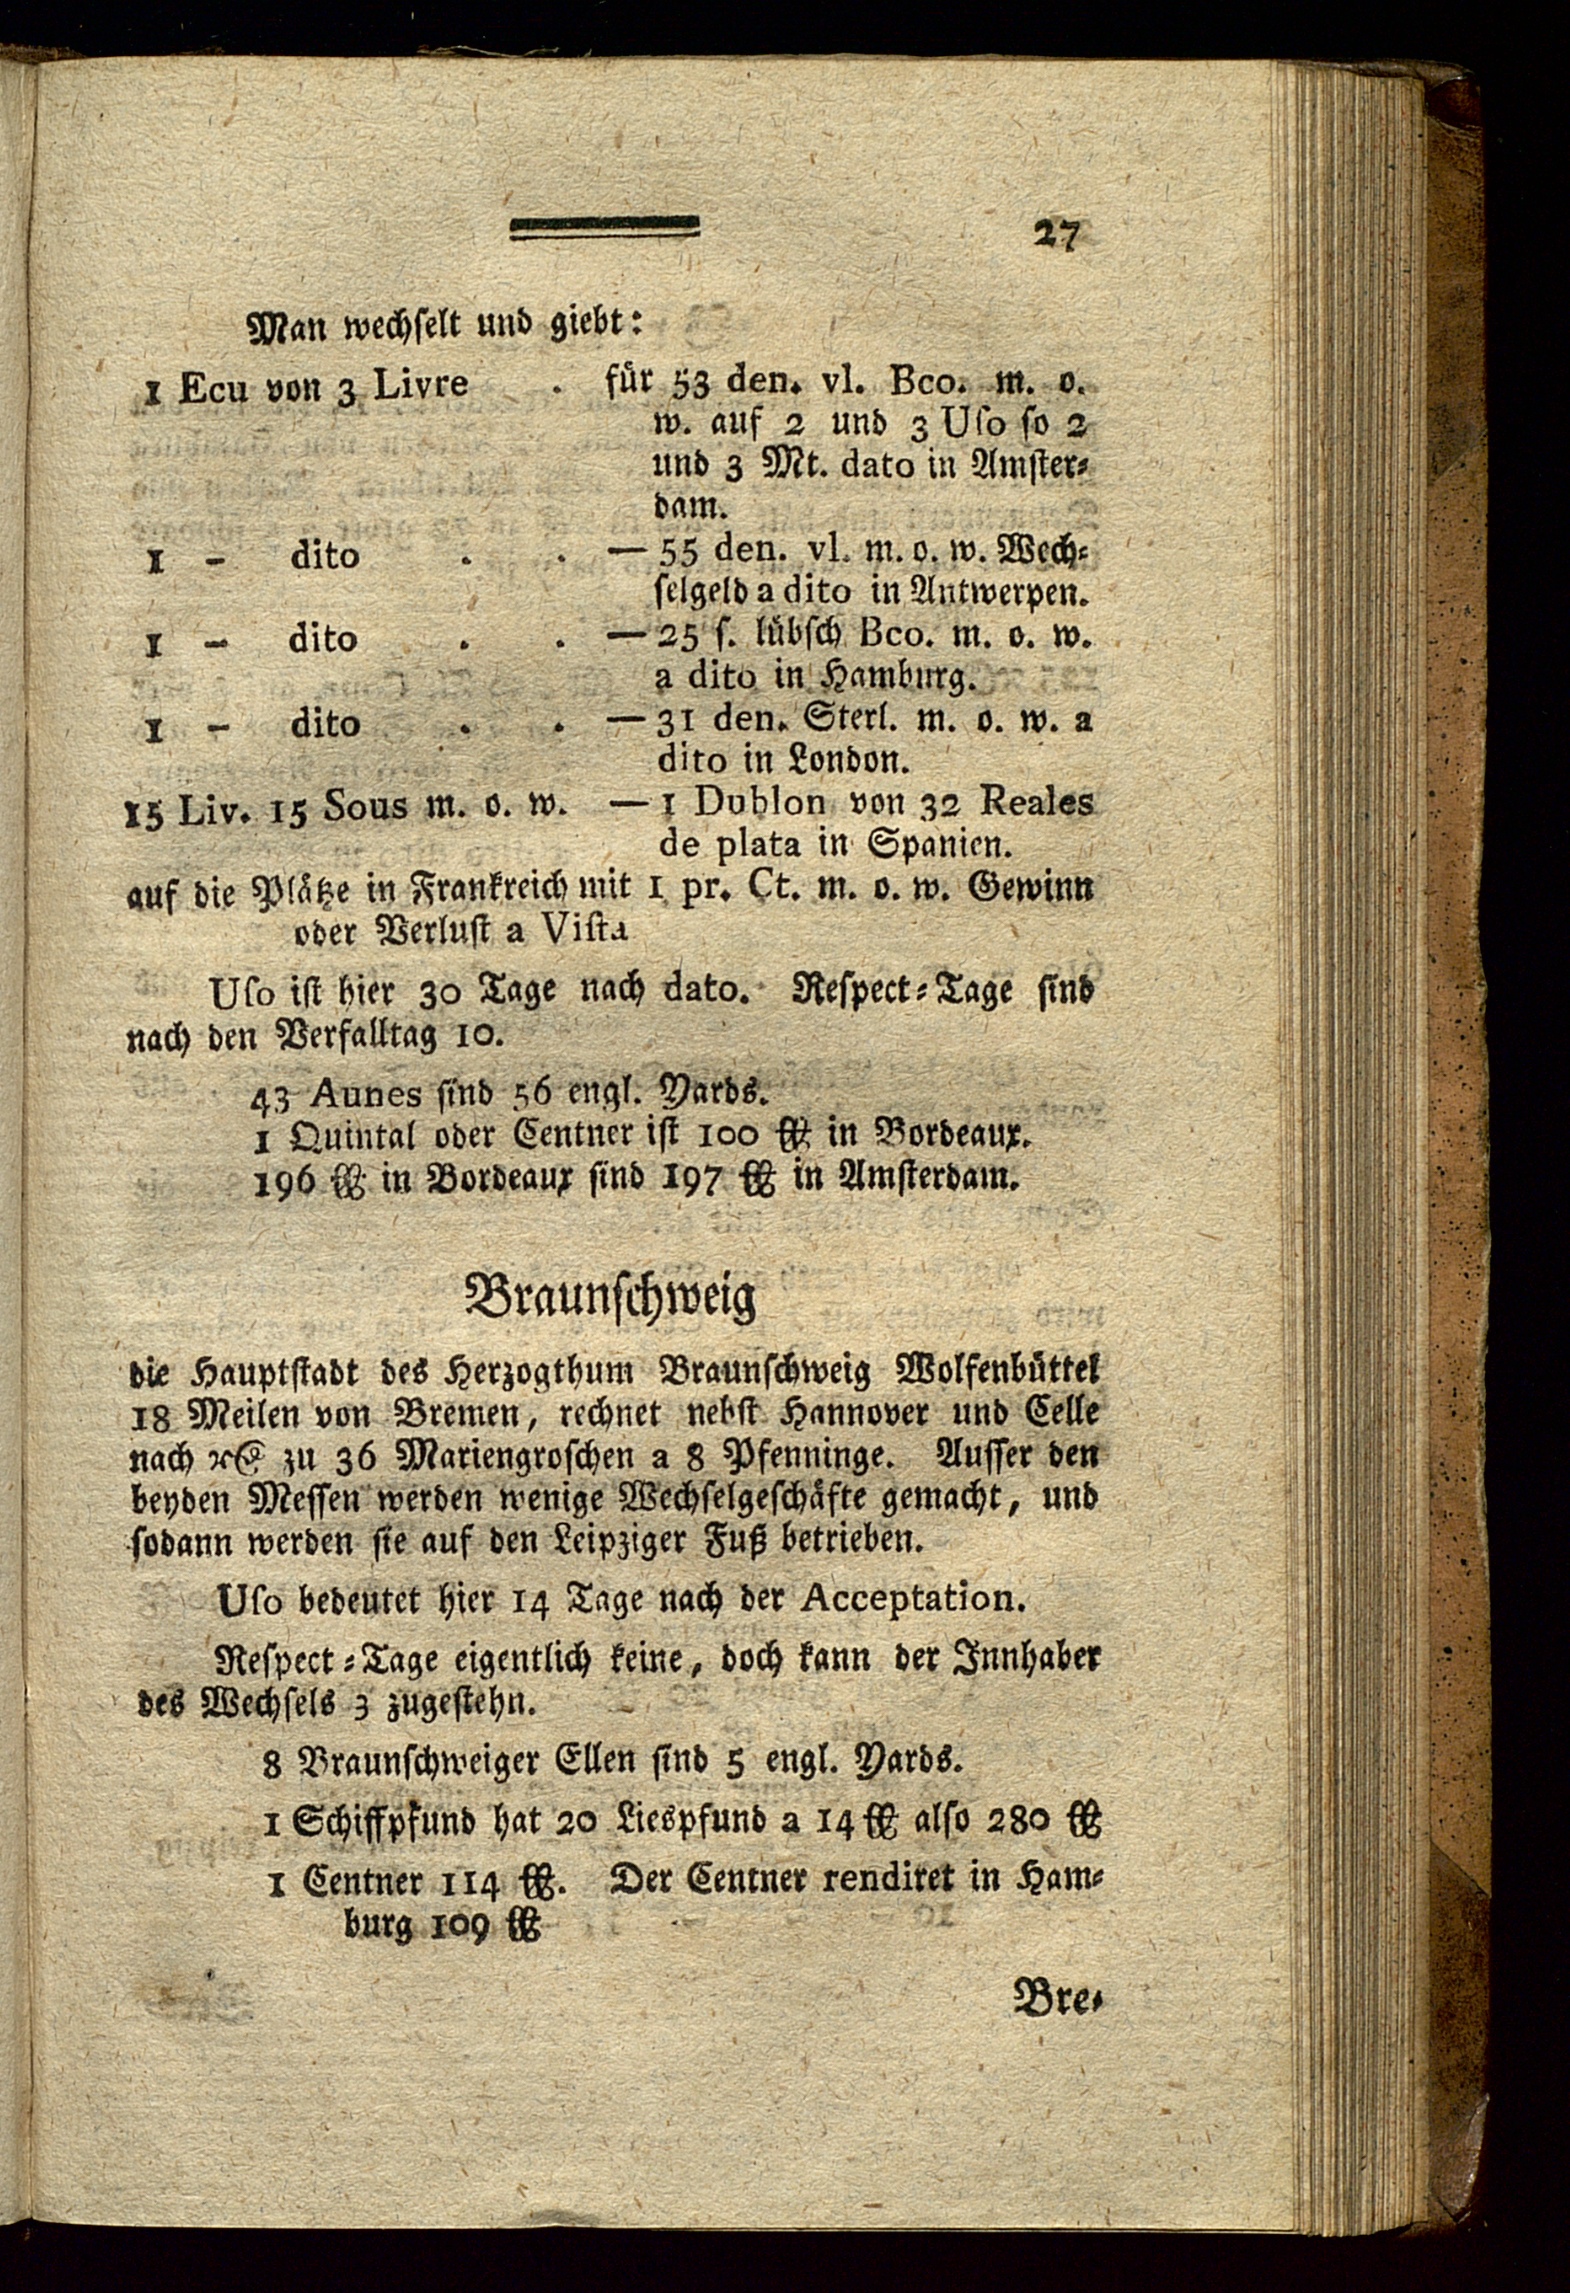 27
Man wechselt und giebt:
1 Ecu von 3 Livre . für 53 den. vl. Bco. m. o.
w. auf 2 und 3 Uſo ſo 2
und 3 Mt. dato in Amſter⸗
dam.
1 - dito . . — 55 den. vl. m. o. w. Wech⸗
ſelgeld a dito in Antwerpen.
1 - dito . . — 25 ſ. lübſch Bco. m. o. w.
a dito in Hamburg.
1 - dito . . — 31 den. Sterl. m. o. w. a
dito in London.
15 Liv. 15 Sous m. o. w. — 1 Dublon von 32 Reales
de plata in Spanien.
auf die Plätze in Frankreich mit 1 pr. Ct. m. o. w. Gewinn
oder Verluſt a Viſta
Uſo iſt hier 30 Tage nach dato. Reſpect⸗Tage ſind
nach den Verfalltag 10.
43 Aunes ſind 56 engl. Yards.
1 Quintal oder Centner iſt 100 ℔ in Bordeaux.
196 ℔ in Bordeaux ſind 197 ℔ in Amſterdam.
Braunſchweig
die Hauptſtadt des Herzogthum Braunſchweig Wolfenbüttel
18 Meilen von Bremen, rechnet nebſt Hannover und Celle
nach rC zu 36 Mariengroſchen a 8 Pfenninge. Auſſer den
beyden Meſſen werden wenige Wechſelgeſchäfte gemacht, und
ſodann werden ſie auf den Leipziger Fuß betrieben.
Uſo bedeutet hier 14 Tage nach der Acceptation.
Reſpect⸗Tage eigentlich keine, doch kann der Innhaber
des Wechſels 3 zugeſtehn.
8 Braunſchweiger Ellen ſind 5 engl. Yards.
1 Schiffpfund hat 20 Liespfund a 14 ℔ alſo 280 ℔
1 Centner 114 ℔. Der Centner rendiret in Ham⸗
burg 109 ℔
Bre⸗